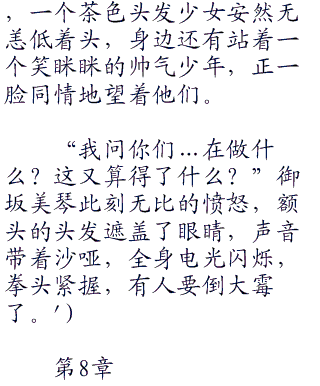 ，一个茶色头发少女安然无
恙低着头，身边还有站着一
个笑眯眯的帅气少年，正一
脸同情地望着他们。
“我问你们…在做什
么？这又算得了什么？”御
坂美琴此刻无比的愤怒，额
头的头发遮盖了眼睛，声音
带着沙哑，全身电光闪烁，
拳头紧握，有人要倒大霉
了。′）
第8章